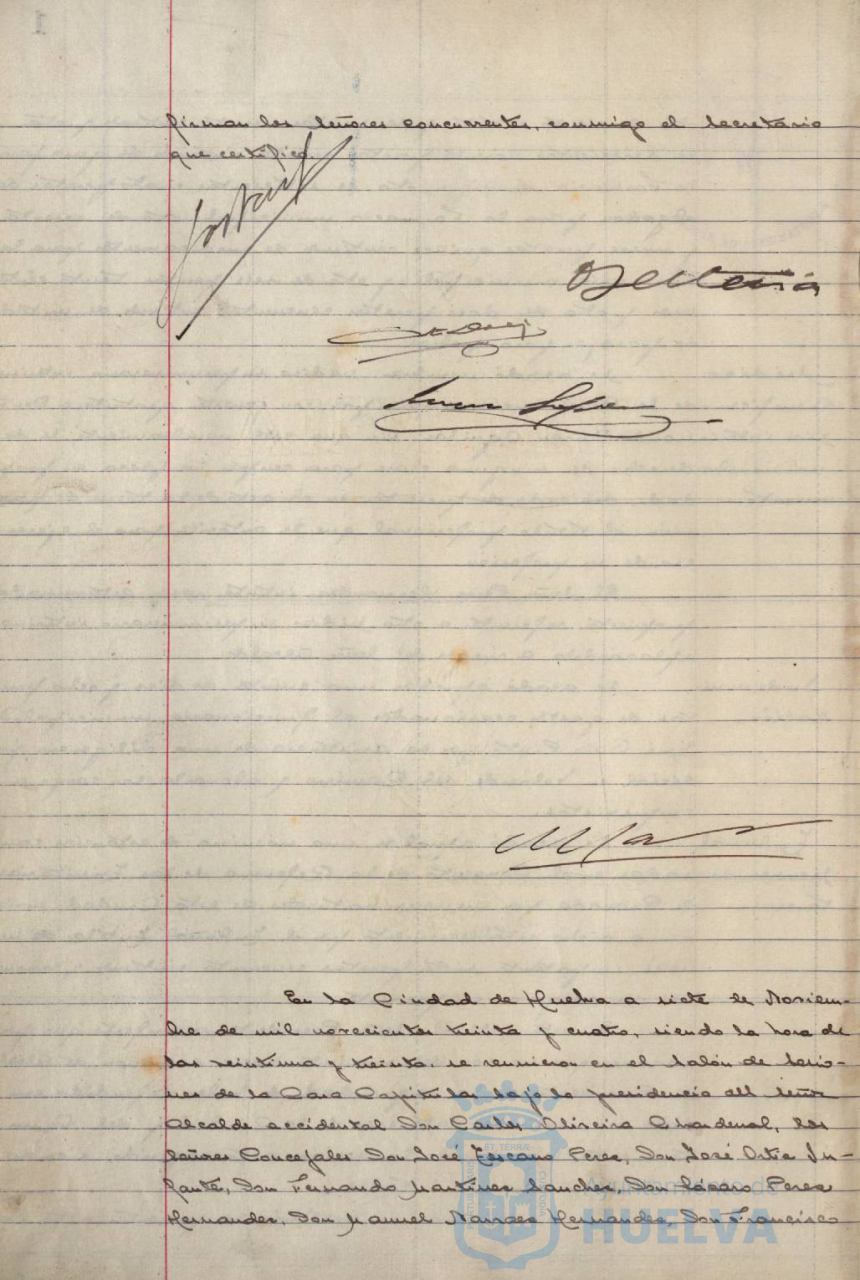 firman los señores concurrentes, conmigo el Secretario
que certifico.
En la Ciudad de Huelva a siete de Noviem-
bre de mil novecientos treinta y cuatro, siendo la hora de
las veintiuna y treinta, se reunieron en el Salón de Sesio-
nes de la Casa Capitular bajo la presidencia del Señor
Alcalde accidental Don Carlos Oliveira Chardenal, los
Señores Concejales Don José Toscano Perez, Don José Ortiz In-
fante, Don Fernando Martinez Sanchez, Don Lázaro Perez
Hernandez, Don Manuel Narvaez Hernandez, Don Francisco
Ayuntamiento de
HUELVA